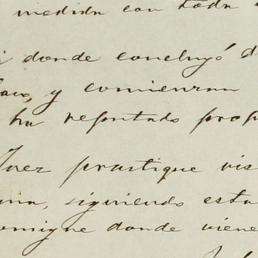 medida con toda
i donde concluyó d
y comienzan
ha reportado prop
Juez practique vis
siguiendo esta
donde viene